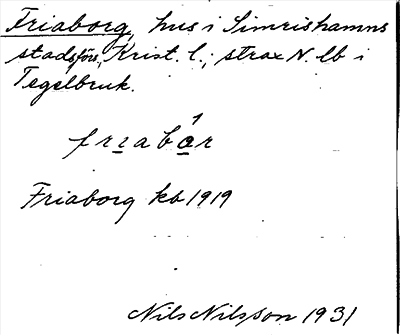 Friaborg, hus i Simrishamns
stadsförs, Krist. l.; strax N. lb i
Tegelbruk.
frıabɑ́r
Friaborg kb 1919
Nils Nilsson 1931